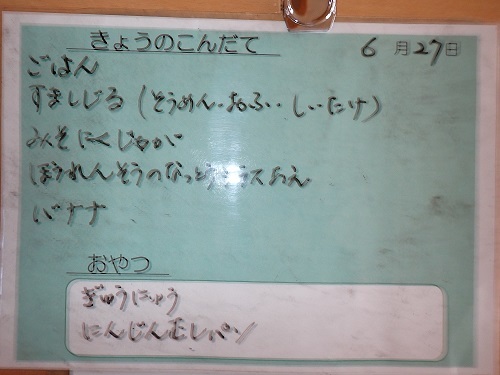 きょうのこんだて 6月27日
ごはん
すましじる(そうめん・おふ・しいたけ)
みそにくじゃが
ほうれんそうのなっとう
バナナ
おやつ
ぎゅうにゅう
にんじんむしパン